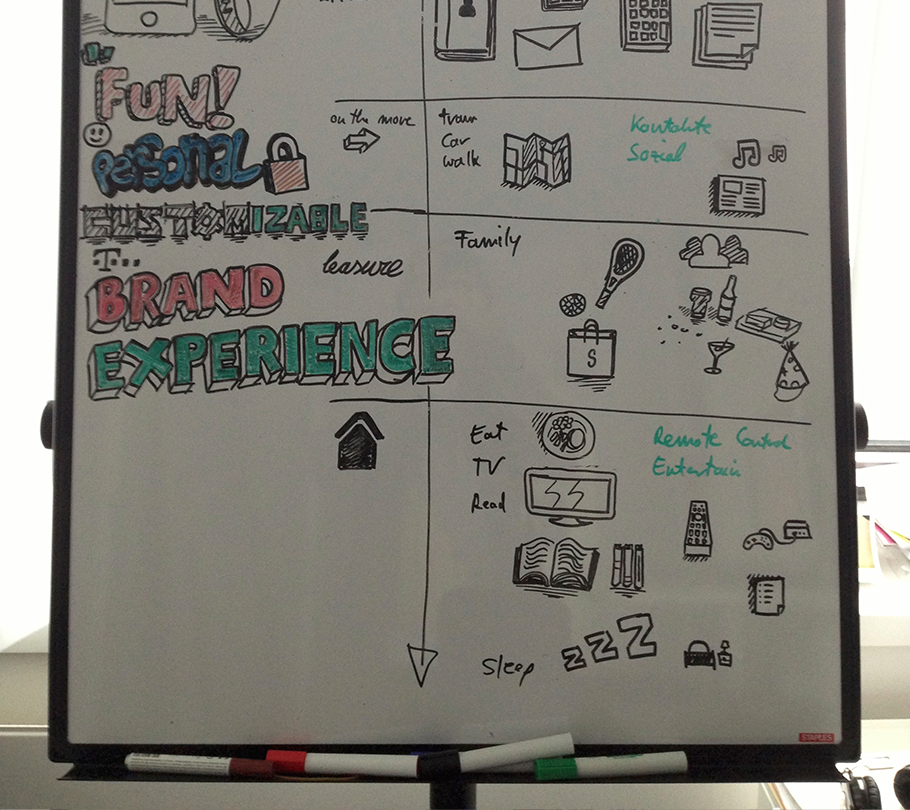 FUN!
Personal
CUSTOMIZABLE
T..
BRAND
EXPERIENCE
on the move
train
Car
walk
Kontakte
Sozial
leasure
Family
S
Eat
TV
Read
Remote Control
Entertain
Sleep
zzZ
STAPLES